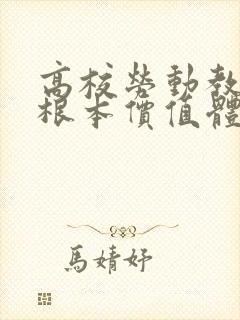 高校勞動教
根本價值體
馬婧妤